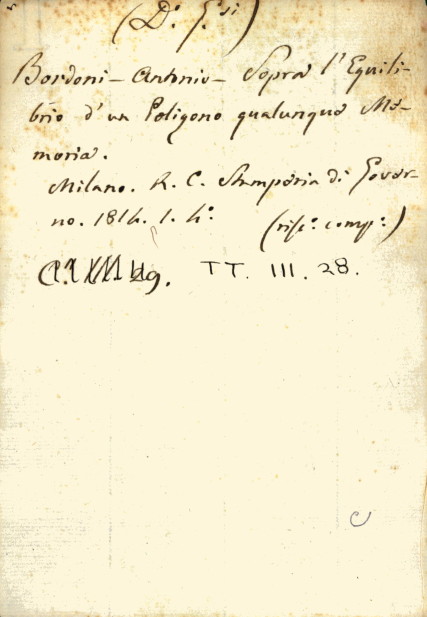 (D.ᵉ G.ˢⁱ)
Bordoni – Antonio – Sopra l'Equili-
brio d'un Poligono qualunque Me-
moria.
Milano. R. C. Stamperia di Gover-
no. 1814. 1. 4.º (risc.º comp.º)
TT. III. 28.